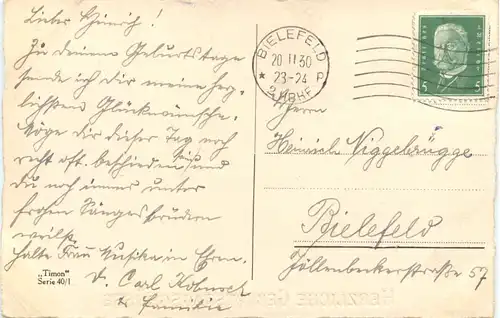 Lieber Heinrich!
Zu deinem Geburtstage
sende ich dir meine herz-
lichsten Glückwünsche.
Möge dir dieser Tag noch
recht oft beschieden sein und
du noch immer unter
frohen Sangesbrüdern
weilst.
Halte Frau Musika in Ehren.
D. Carl
u. Familie
„Timon“
Serie 40/1
BIELEFELD
20 11 30
23-24
* 2 HBHF P
5 5
Herrn
Heinrich Niggebrügge
Bielefeld
Jöllenbeckerstraße 57
HERZLICHE